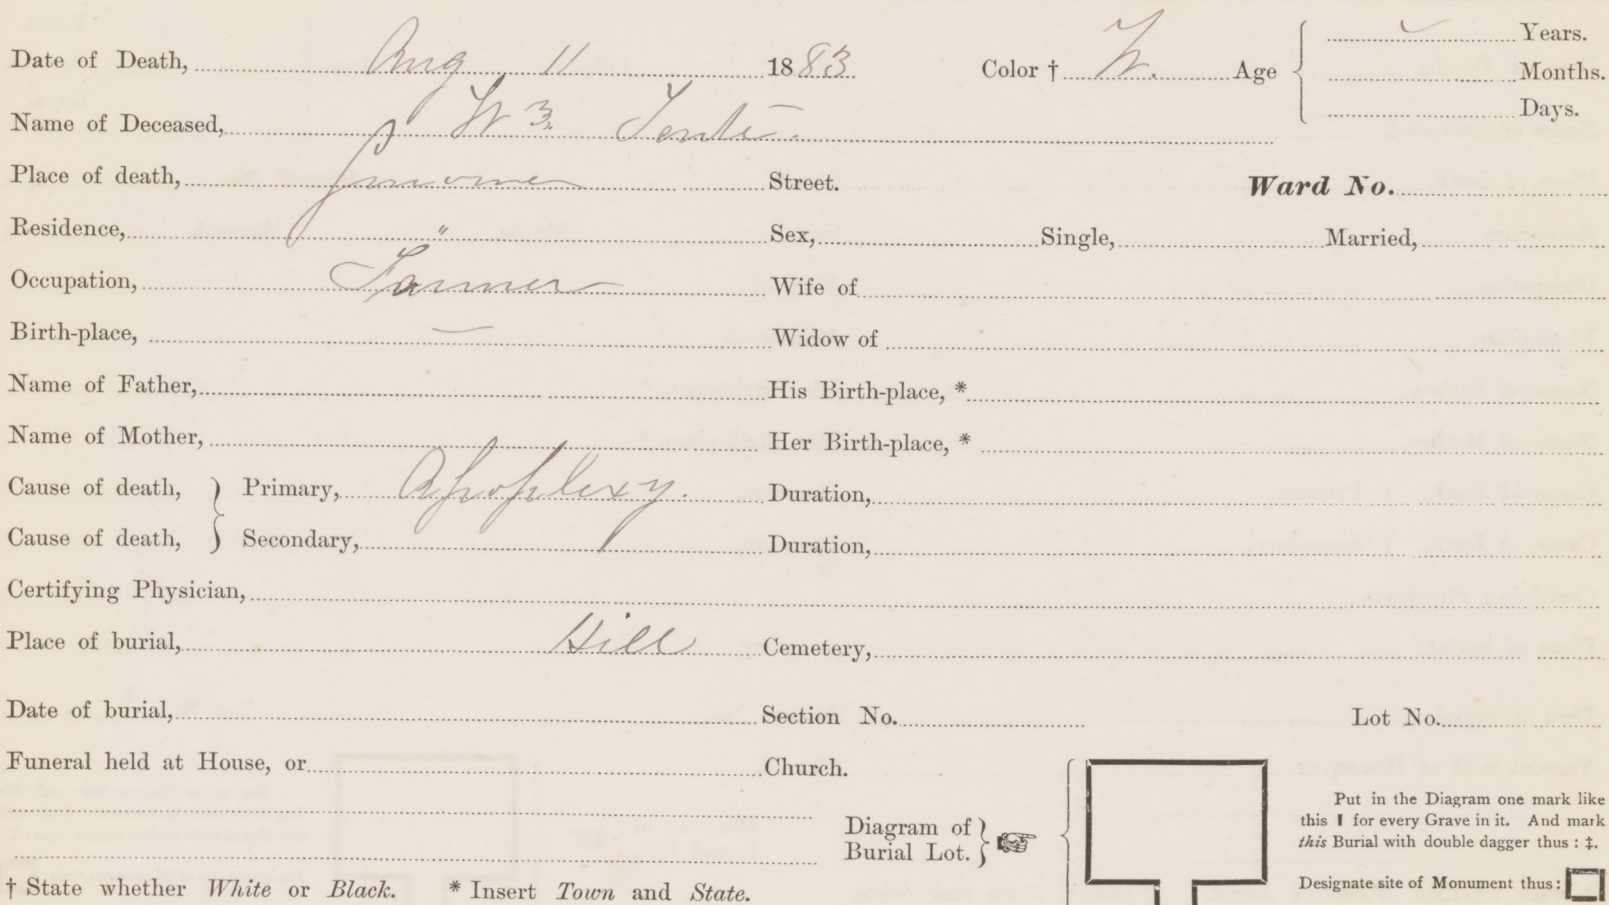 Date of Death, Aug 11 1883. Color † W. Age Years.
Months.
Days.
Name of Deceased, W
Place of death, Street. Ward No.
Residence, " Sex, Single, Married,
Occupation, Farmer Wife of
Birth-place, — Widow of
Name of Father, His Birth-place, *
Name of Mother, Her Birth-place, *
Cause of death, } Primary, Apoplexy. Duration,
Cause of death, } Secondary, Duration,
Certifying Physician,
Place of burial, Hill Cemetery,
Date of burial, Section No. Lot No.
Funeral held at House, or Church.
Diagram of
Burial Lot. }
Put in the Diagram one mark like
this I for every Grave in it. And mark
this Burial with double dagger thus : ‡.
Designate site of Monument thus :
† State whether White or Black. * Insert Town and State.